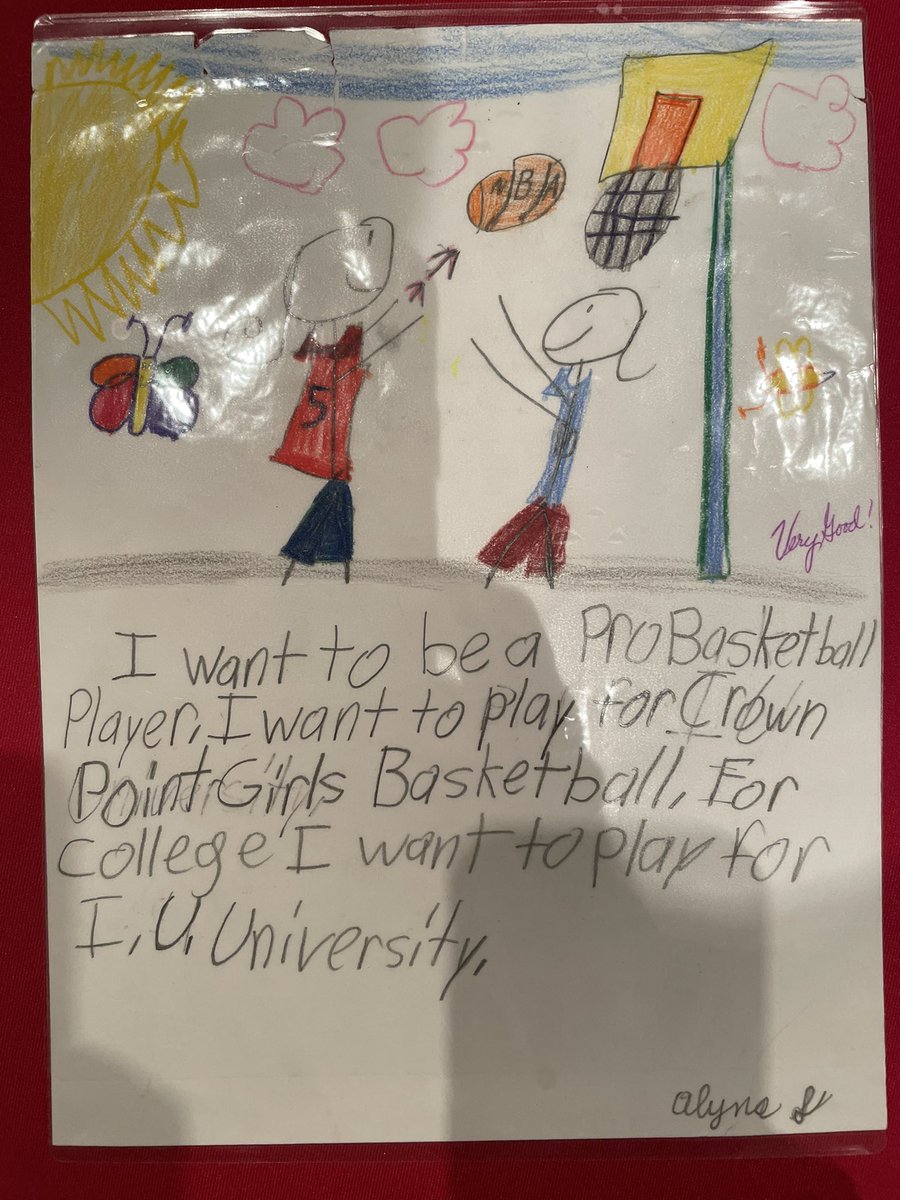 NBA
5
Very Good!
I want to be a ProBasketball
Player. I want to play for Crown
Point Girls Basketball. For
college I want to play for
I.U. University.
alyna